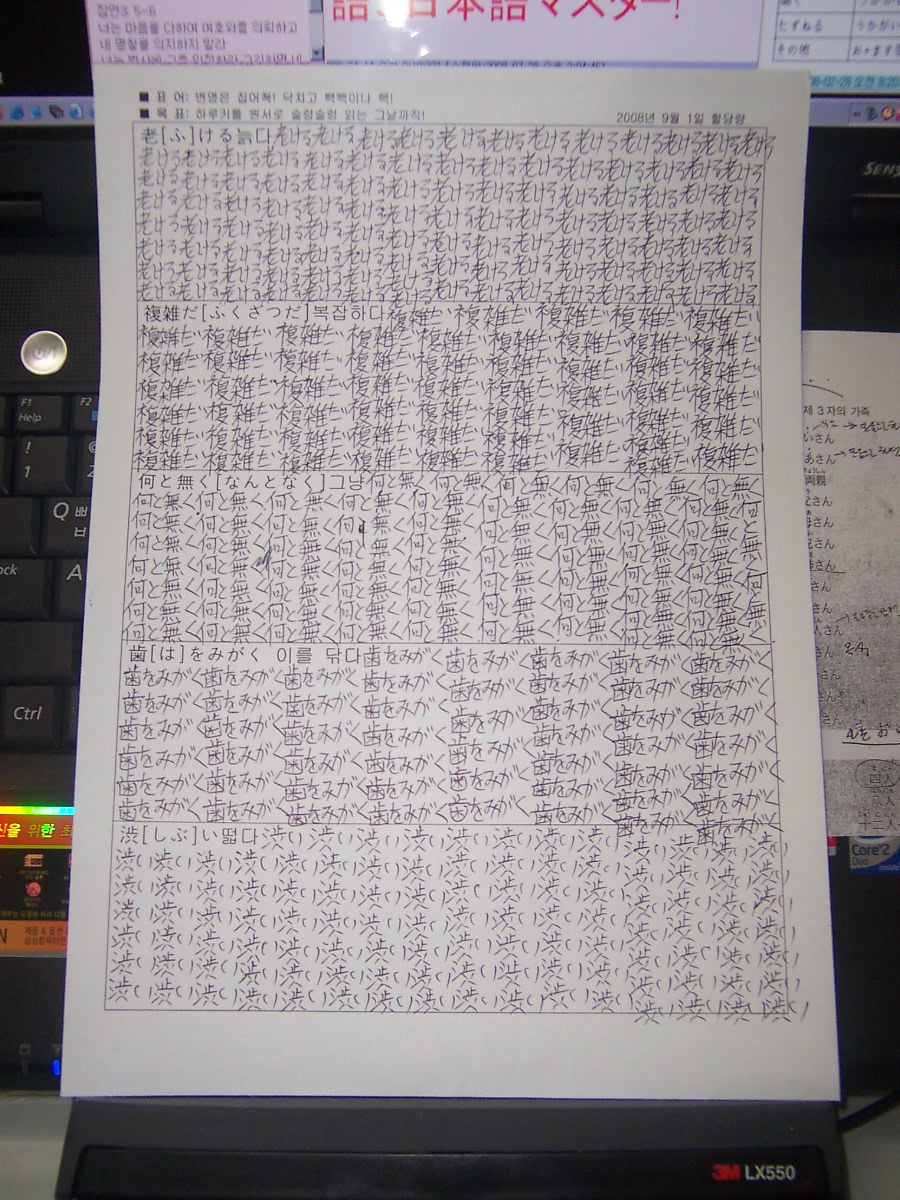 잠언3 5~6
너는 마음을 다하여 여호와를 의뢰하고
네 명철을 의지하지 말라
語』日本語マスター!
たずねる
その他
■ 표 어: 변명은 집어쳐! 닥치고 빽빽이나 핵!
■ 목 표: 하루키를 원서로 술렁술렁 읽는 그날까작!
2008년 9월 1일 할당량
老[ふ]ける늙다老ける老ける老ける老ける老ける老ける老ける老ける老ける老ける老ける老ける
老ける老ける老ける老ける老ける老ける老ける老ける老ける老ける老ける老ける老ける老ける老ける
老ける老ける老ける老ける老ける老ける老ける老ける老ける老ける老ける老ける老ける老ける老ける
老ける老ける老ける老ける老ける老ける老ける老ける老ける老ける老ける老ける老ける老ける老ける
老ける老ける老ける老ける老ける老ける老ける老ける老ける老ける老ける老ける老ける老ける老ける
老ける老ける老ける老ける老ける老ける老ける老ける老ける老ける老ける老ける老ける老ける老ける
老ける老ける老ける老ける老ける老ける老ける老ける老ける老ける老ける老ける老ける老ける老ける
老ける老ける老ける老ける老ける老ける老ける老ける老ける老ける老ける老ける老ける老ける老ける
複雑だ[ふくざつだ]복잡하다複雑だ 複雑だ 複雑だ 複雑だ 複雑だ
複雑だ 複雑だ 複雑だ 複雑だ 複雑だ 複雑だ 複雑だ 複雑だ 複雑だ
複雑だ 複雑だ 複雑だ 複雑だ 複雑だ 複雑だ 複雑だ 複雑だ 複雑だ
複雑だ 複雑だ 複雑だ 複雑だ 複雑だ 複雑だ 複雑だ 複雑だ 複雑だ
複雑だ 複雑だ 複雑だ 複雑だ 複雑だ 複雑だ 複雑だ 複雑だ 複雑だ
複雑だ 複雑だ 複雑だ 複雑だ 複雑だ 複雑だ 複雑だ 複雑だ 複雑だ
複雑だ 複雑だ 複雑だ 複雑だ 複雑だ 複雑だ 複雑だ 複雑だ 複雑だ
何と無く[なんとなく]그냥何と無く何と無く何と無く何と無く何と無く何と無
何と無く何と無く何と無く何と無く何と無く何と無く何と無く何と無く何と無く何
何と無く何と無く何と無く何と無く何と無く何と無く何と無く何と無く何と無く何と
何と無く何と無く何と無く何と無く何と無く何と無く何と無く何と無く何と無く
何と無く何と無く何と無く何と無く何と無く何と無く何と無く何と無く何と無く
何と無く何と無く何と無く何と無く何と無く何と無く何と無く何と無く何と無く何
何と無く何と無く何と無く何と無く何と無く何と無く何と無く何と無く何と無く
何と無く何と無く何と無く何と無く何と無く何と無く何と無く何と無く何と無く
歯[は]をみがく 이를 닦다歯をみがく歯をみがく歯をみがく歯をみがく歯をみがく
歯をみがく歯をみがく歯をみがく歯をみがく歯をみがく歯をみがく歯をみがく歯をみがく
歯をみがく歯をみがく歯をみがく歯をみがく歯をみがく歯をみがく歯をみがく歯をみがく
歯をみがく歯をみがく歯をみがく歯をみがく歯をみがく歯をみがく歯をみがく歯をみがく
歯をみがく歯をみがく歯をみがく歯をみがく歯をみがく歯をみがく歯をみがく歯をみがく
歯をみがく歯をみがく歯をみがく歯をみがく歯をみがく歯をみがく歯をみがく歯をみがく
歯をみがく歯をみがく歯をみがく歯をみがく歯をみがく歯をみがく歯をみがく歯をみがく
渋[しぶ]い떫다渋い渋い渋い渋い渋い渋い渋い渋い渋い渋い渋い渋い
渋い渋い渋い渋い渋い渋い渋い渋い渋い渋い渋い渋い渋い渋い渋い渋い
渋い渋い渋い渋い渋い渋い渋い渋い渋い渋い渋い渋い渋い渋い渋い渋い
渋い渋い渋い渋い渋い渋い渋い渋い渋い渋い渋い渋い渋い渋い渋い渋い
渋い渋い渋い渋い渋い渋い渋い渋い渋い渋い渋い渋い渋い渋い渋い渋い
渋い渋い渋い渋い渋い渋い渋い渋い渋い渋い渋い渋い渋い渋い渋い渋い
渋い渋い渋い渋い渋い渋い渋い渋い渋い渋い渋い渋い渋い渋い渋い渋い
SENS
F1
Help
F2
!
1
Q ㅃ
ㅂ
A
Ctrl
제 3자의 가족
両親
四人
Core 2
Duo
3M LX550